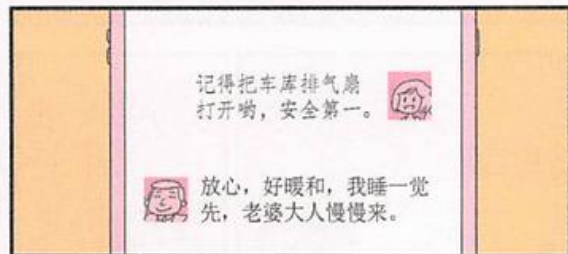 记得把车库排气扇
打开哟，安全第一。
放心，好暖和，我睡一觉
先，老婆大人慢慢来。